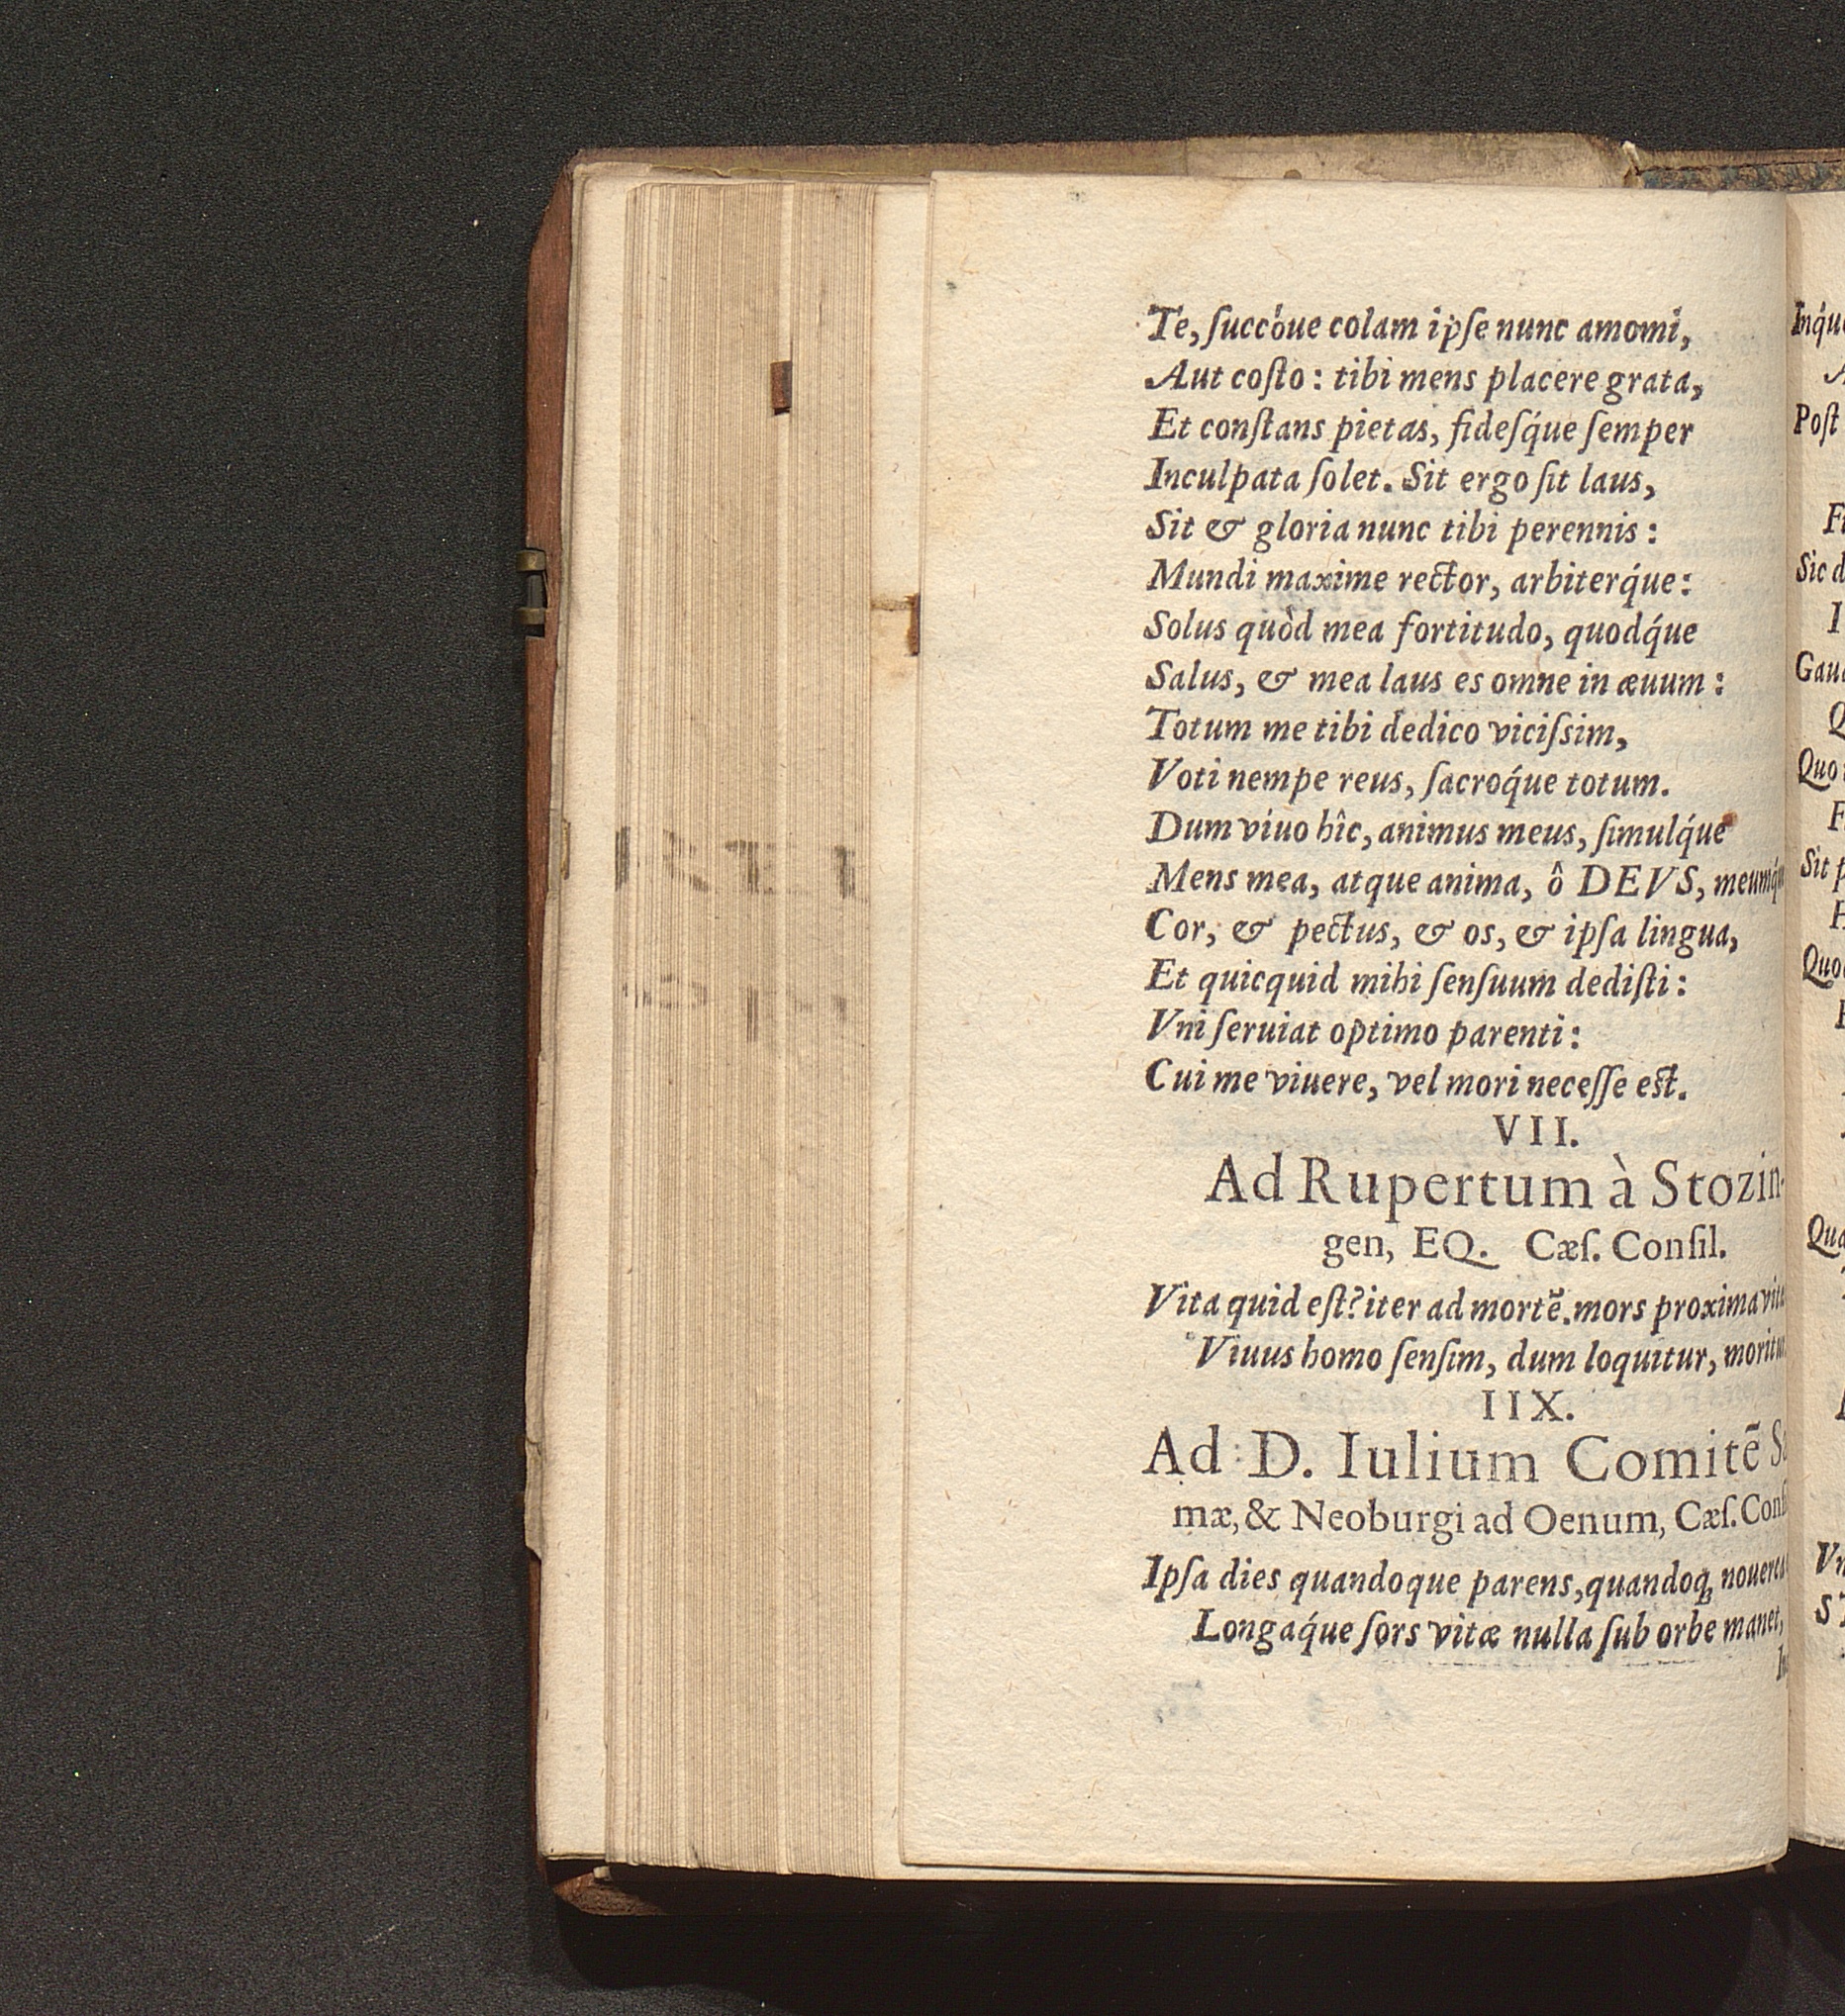 Te, ſuccóue colam ipſe nunc amomi,
Aut coſto: tibi mens placere grata,
Et conſtans pietas, fideſq́ue ſemper
Inculpata ſolet. Sit ergo ſit laus,
Sit & gloria nunc tibi perennis:
Mundi maxime rector, arbiterq́ue:
Solus quòd mea fortitudo, quodq́ue
Salus, & mea laus es omne in æuum:
Totum me tibi dedico viciſsim,
Voti nempe reus, ſacroq́ue totum.
Dum viuo hîc, animus meus, ſimulq́ue
Mens mea, atque anima, ô DEVS,
Cor, & pectus, & os, & ipſa lingua,
Et quicquid mihi ſenſuum dediſti:
Vni ſeruiat optimo parenti:
Cui me viuere, vel mori neceſſe eſt.
VII.
Ad Rupertum à Stozin-
gen, EQ. Cæſ. Conſil.
Vita quid eſt? iter ad mortē. mors proxima
Viuus homo ſenſim, dum loquitur,
IIX.
Ad D. Iulium Comitē
mæ, & Neoburgi ad Oenum, Cæſ.
Ipſa dies quandoque parens, quandoq́;
Longaq́ue ſors vitæ nulla ſub orbe manet,
Poſt
Sic
Sit